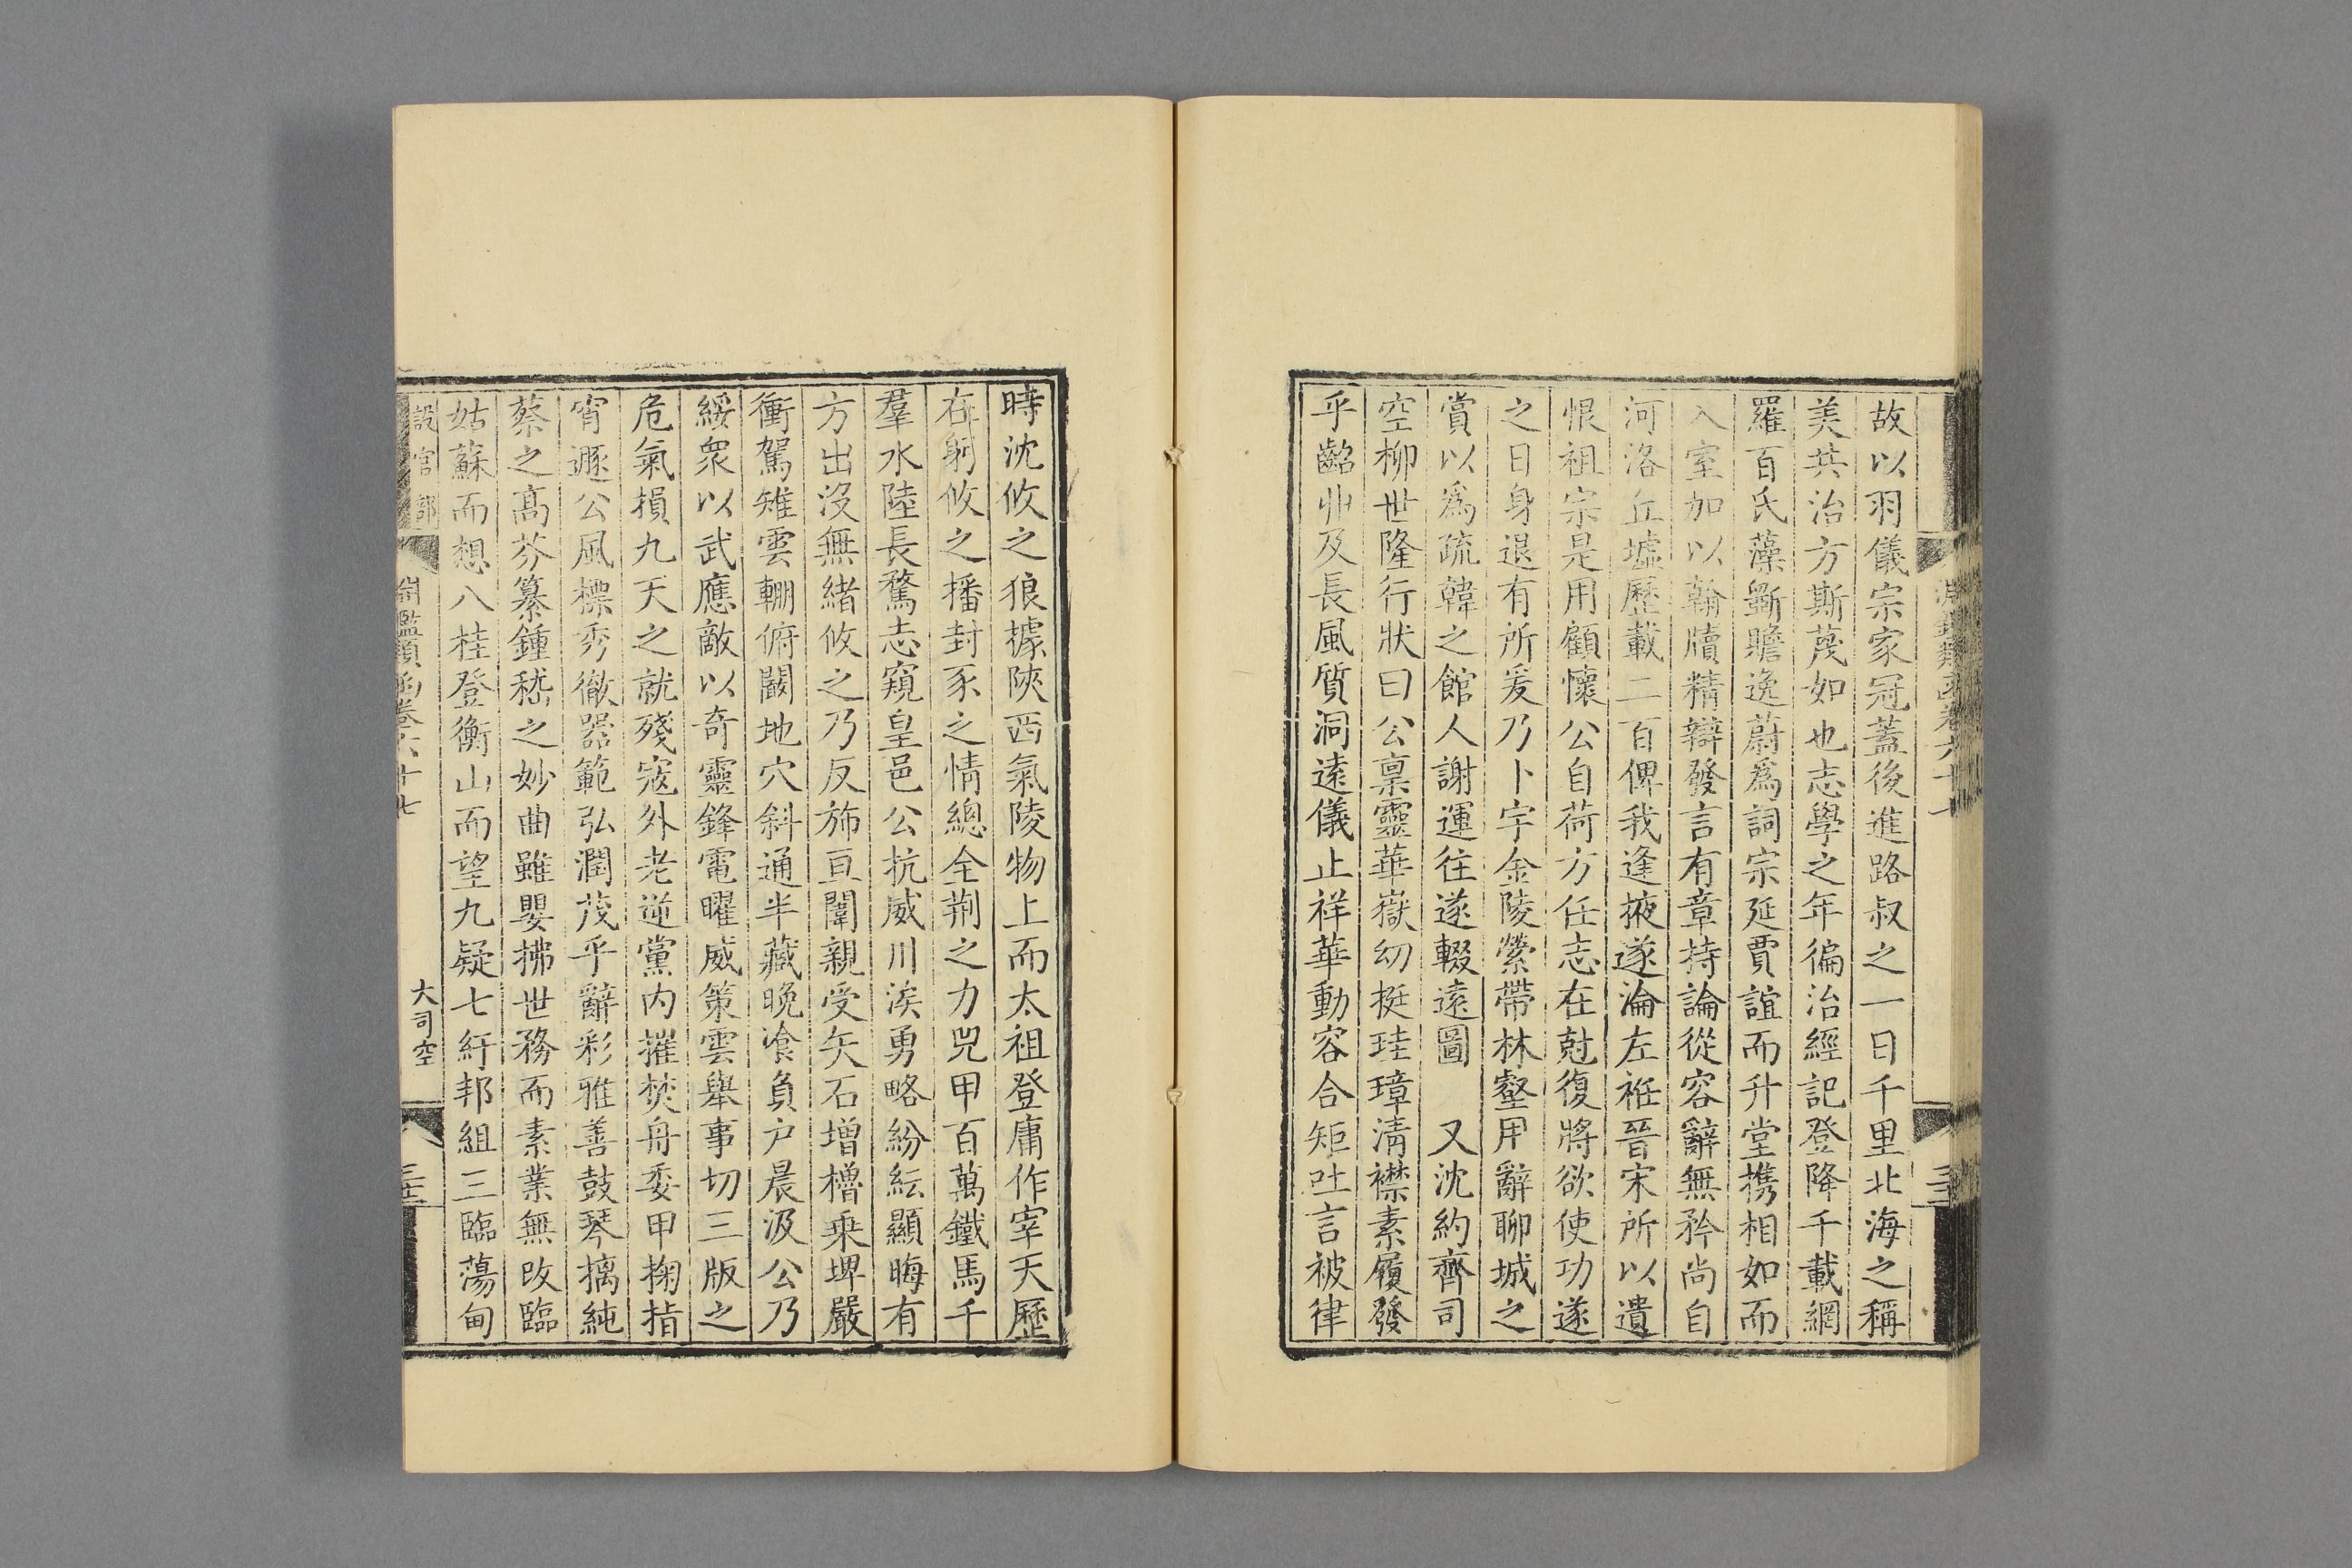 故以羽儀宗家冠蓋後進路叔之一日千里北海之稱
美共治方斯蔑如也志學之年徧治經記登降千載網
羅百氏藻斵贍逸蔚爲詞宗延賈誼而升堂携相如而
入室加以翰牘精辯發言有章持論從容辭無矜尚自
河洛丘墟歷載二百俾我逢掖遂淪左袵晉宋所以遺
恨祖宗是用顧懷公自荷方任志在尅復將欲使功遂
之日身退有所爰乃卜宇金陵縈帶林壑用辭聊城之
賞以爲疏韓之館人謝運往遂輟遠圖　又沈約齊司
空柳世隆行狀曰公稟靈華嶽幼挺珪璋清襟素履發
乎齠丱及長風質洞遠儀止祥華動容合矩吐言被律
時沈攸之狼據陝西氣陵物上而太祖登庸作宰天歷
在躬攸之播封豕之情總全荆之力兕甲百萬鐵馬千
羣水陸長騖志窺皇邑公抗威川涘勇略紛紜顯晦有
方出沒無緒攸之乃反斾亘闉親受矢石增櫓乗埤嚴
衝駕雉雲輣俯闞地穴斜通半藏晚飡負户晨汲公乃
綏衆以武應敵以奇靈鋒電曜威策雲舉事切三版之
危氣損九天之就殘寇外老逆黨内摧焚舟委甲掬指
宵遯公風標秀徹器範弘潤茂乎辭彩雅善鼓琴摛純
蔡之高芬纂鍾嵇之妙曲雖嬰拂世務而素業無改臨
姑蘇而想八桂登衡山而望九疑七紆邦組三臨蕩甸
設官部　淵鑑類函卷六十七　大司空